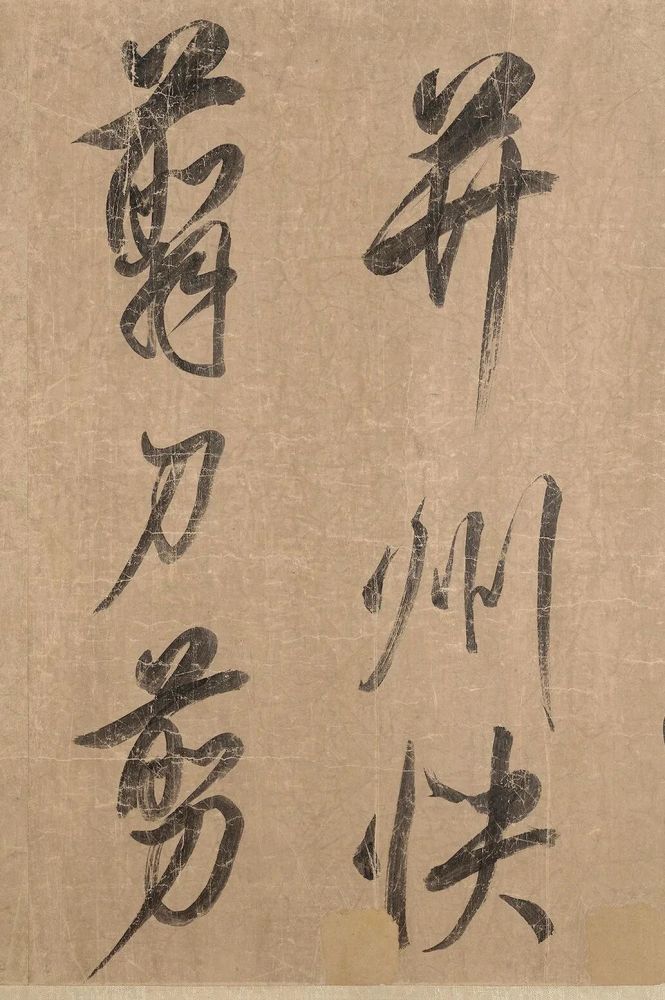 并州快
翦刀剪